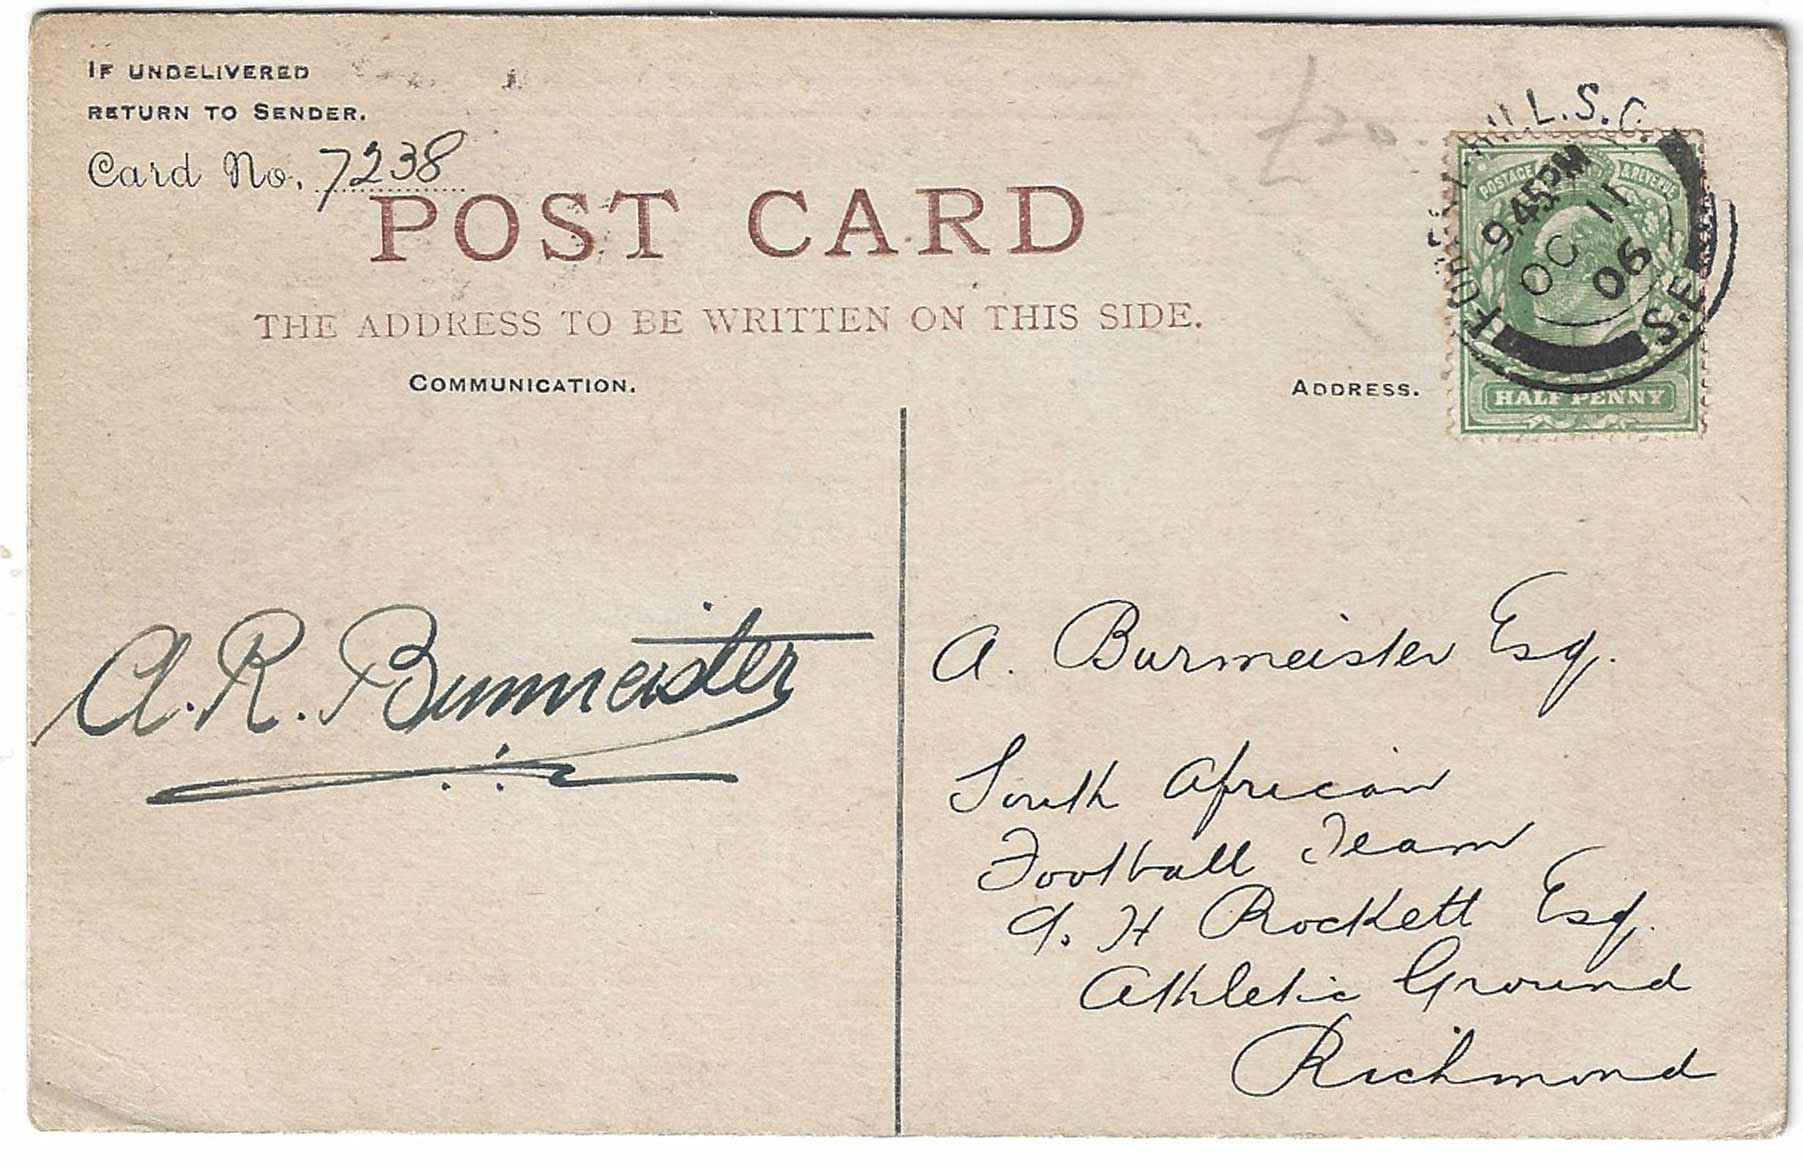 IF UNDELIVERED
RETURN TO SENDER.
Card No. 7238
POST CARD
THE ADDRESS TO BE WRITTEN ON THIS SIDE.
COMMUNICATION.
ADDRESS.
£20.
HILL S.O.
S.E.
9.45PM
OC 11
06
POSTAGE & REVENUE
HALF PENNY
A. R. Burmeister
A. Burmeister Esq.
South African
Football Team
H Rockett Esq.
Athletic Ground
Richmond